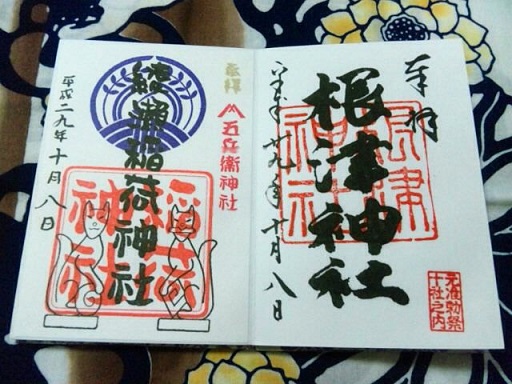 奉拝
根津神社
平成廿九年十月八日
根津神社
元准勅祭
十社之内
奉拝
五兵衛神社
綾瀬稲荷神社
稲荷神社
平成二九年十月八日